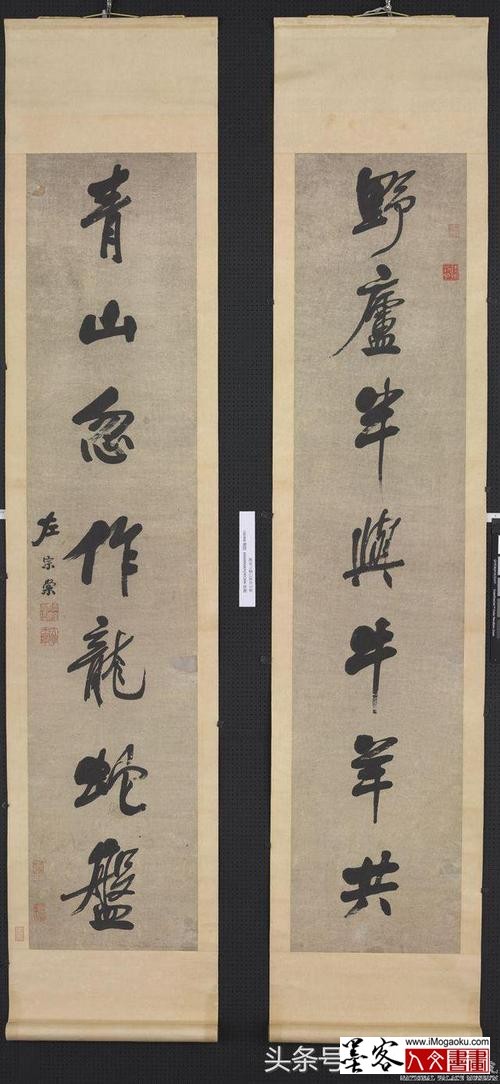 野廬半與牛羊共
青山忽作龍蛇盤
左宗棠
头条号
墨客
www.iMogaoku.com
人文書畫
NATIONAL PALACE MUSEUM